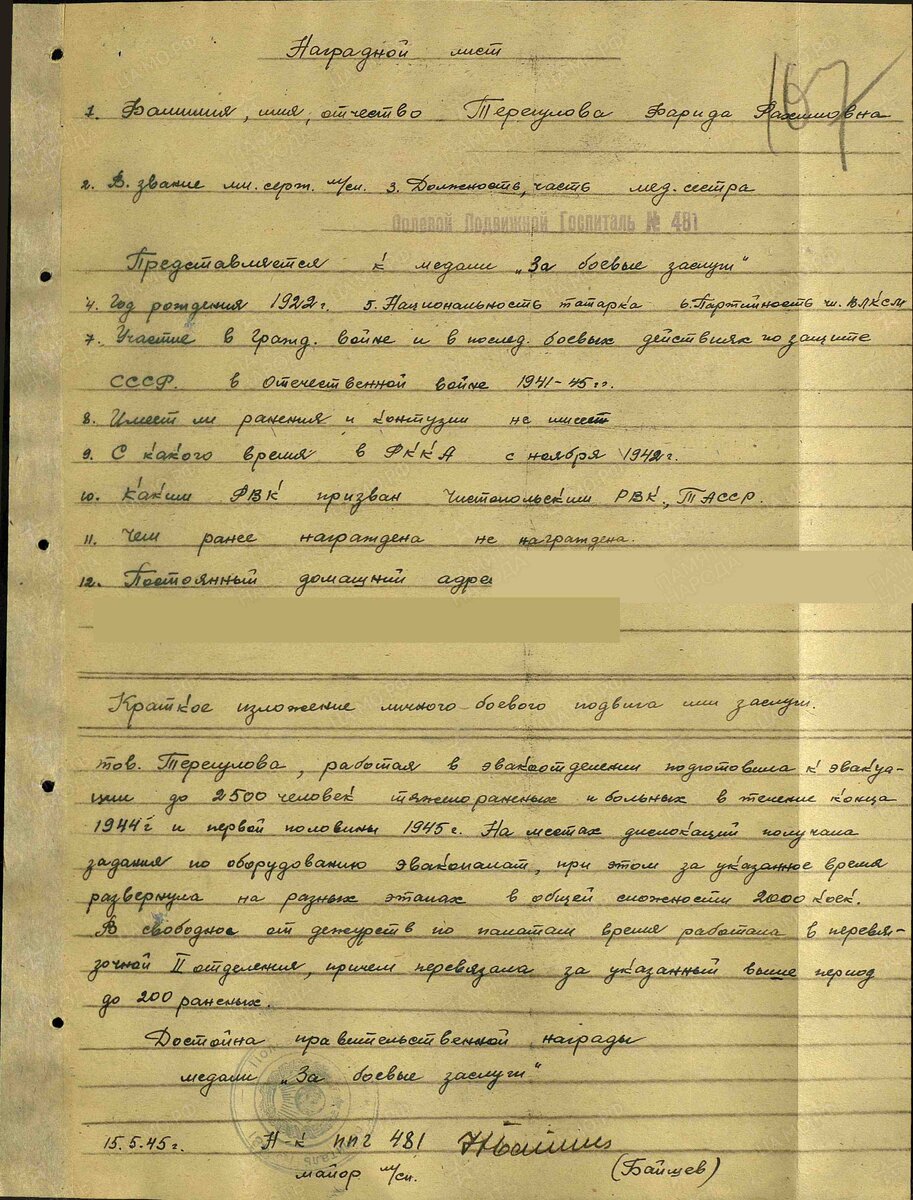 Наградной лист
167
1. Фамилия, имя, отчество Терегулова Фарида Рахимовна
2. В. звание мл. серж. м/сл. 3. Должность, часть мед. сестра
Полевой Подвижной Госпиталь № 481
Представляется к медали „За боевые заслуги"
4. Год рождения 1922 г. 5. Национальность татарка 6. Партийность чл. ВЛКСМ
7. Участие в Гражд. войне и в послед. боевых действиях по защите
СССР. в Отечественной войне 1941-45 гг.
8. Имеет ли ранения и контузии не имеет
9. С какого время в РККА с ноября 1942 г.
10. Каким РВК призван Чистопольским РВК, ТАССР.
11. Чем ранее награждена не награждена.
12. Постоянный домашний адре
Краткое изложение личного боевого подвига или заслуги.
тов. Терегулова, работая в эвакоотделении подготовила к эвакуа-
ции до 2500 человек тяжелораненых и больных в течение конца
1944 г и первой половины 1945 г. На местах дислокаций получала
задания по оборудованию эвакопалат, при этом за указанное время
развернула на разных этапах в общей сложности 2000 коек.
В свободное от дежурств по палатам время работала в перевя-
зочной II отделения, причем перевязала за указанный выше период
до 200 раненых.
Достойна правительственной награды
медали „За боевые заслуги"
15.5.45 г. Н-к ППГ 481
майор м/сл. (Байшев)